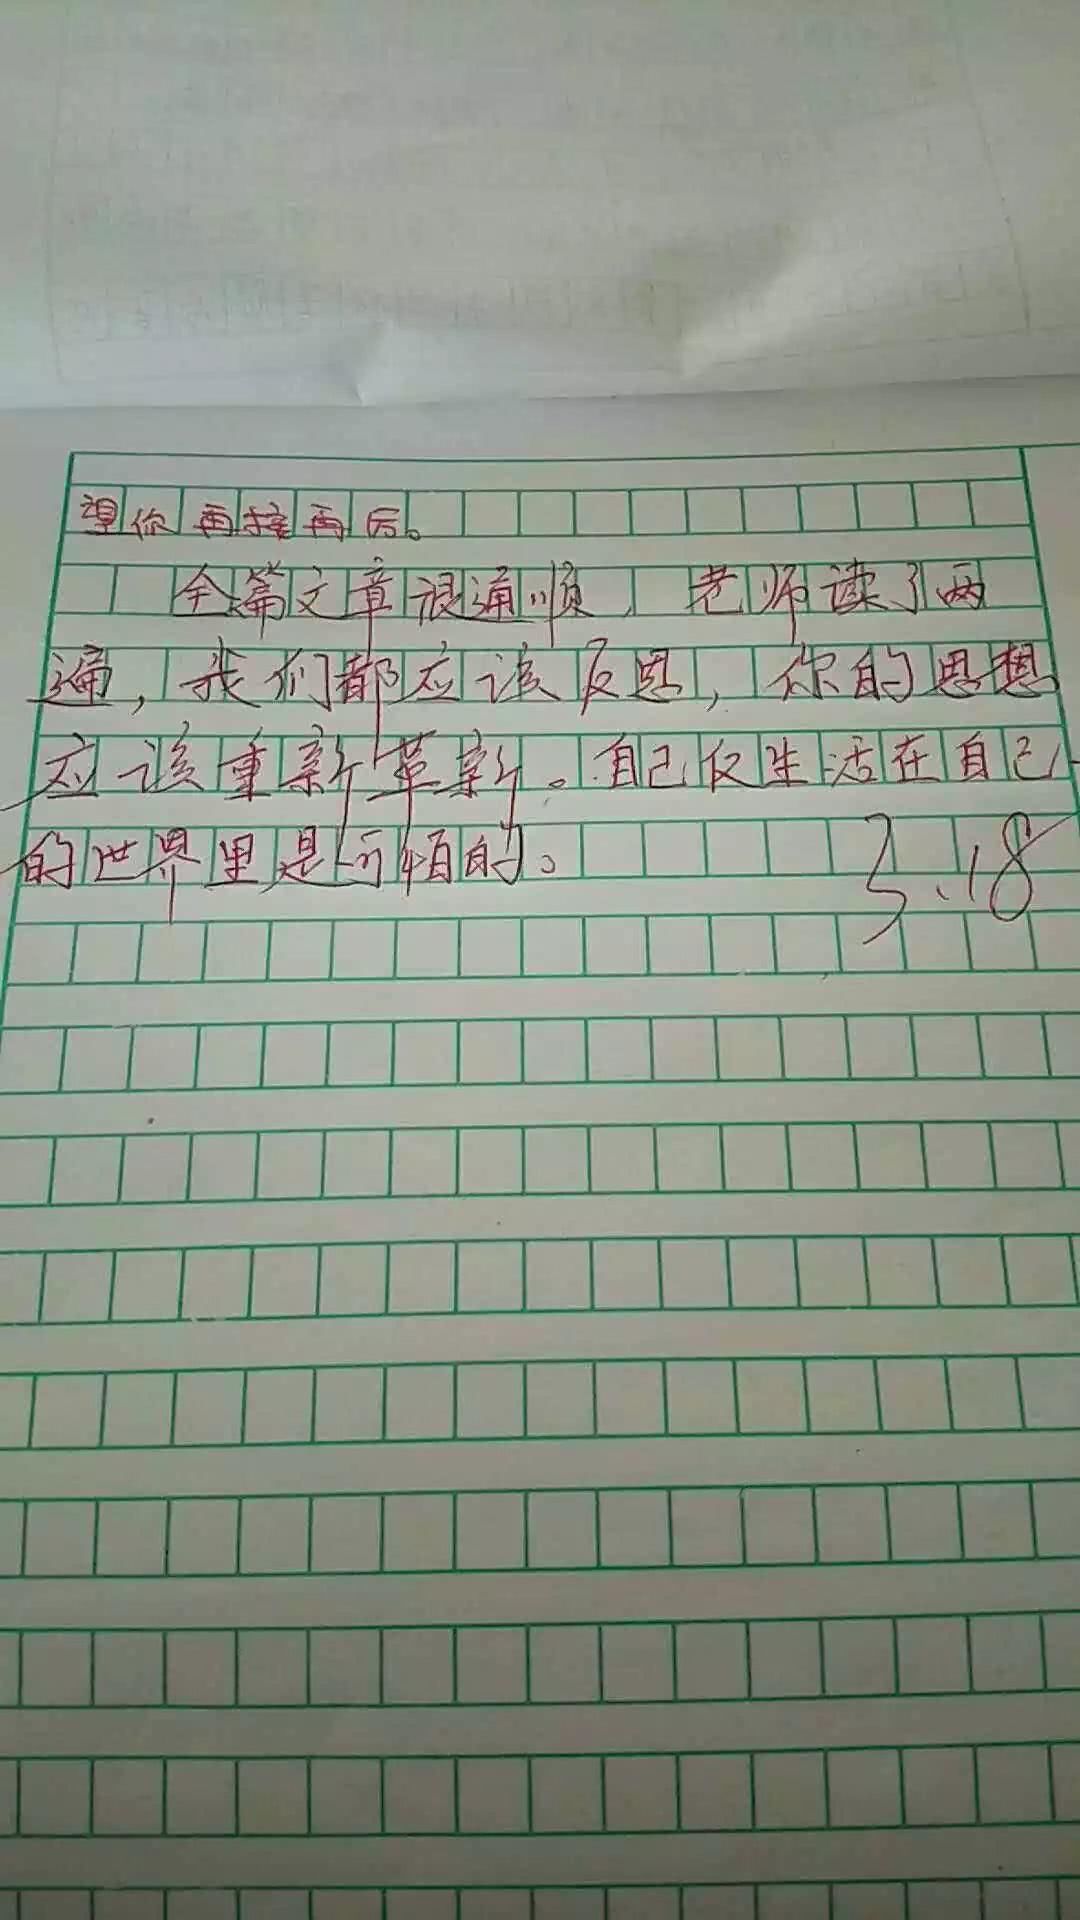 望你再接再厉。
全篇文章很通顺，老师读了两
遍，我们都应该反思，你的思想
应该重新革新。自己仅生活在自己
的世界里是可怕的。
3.18